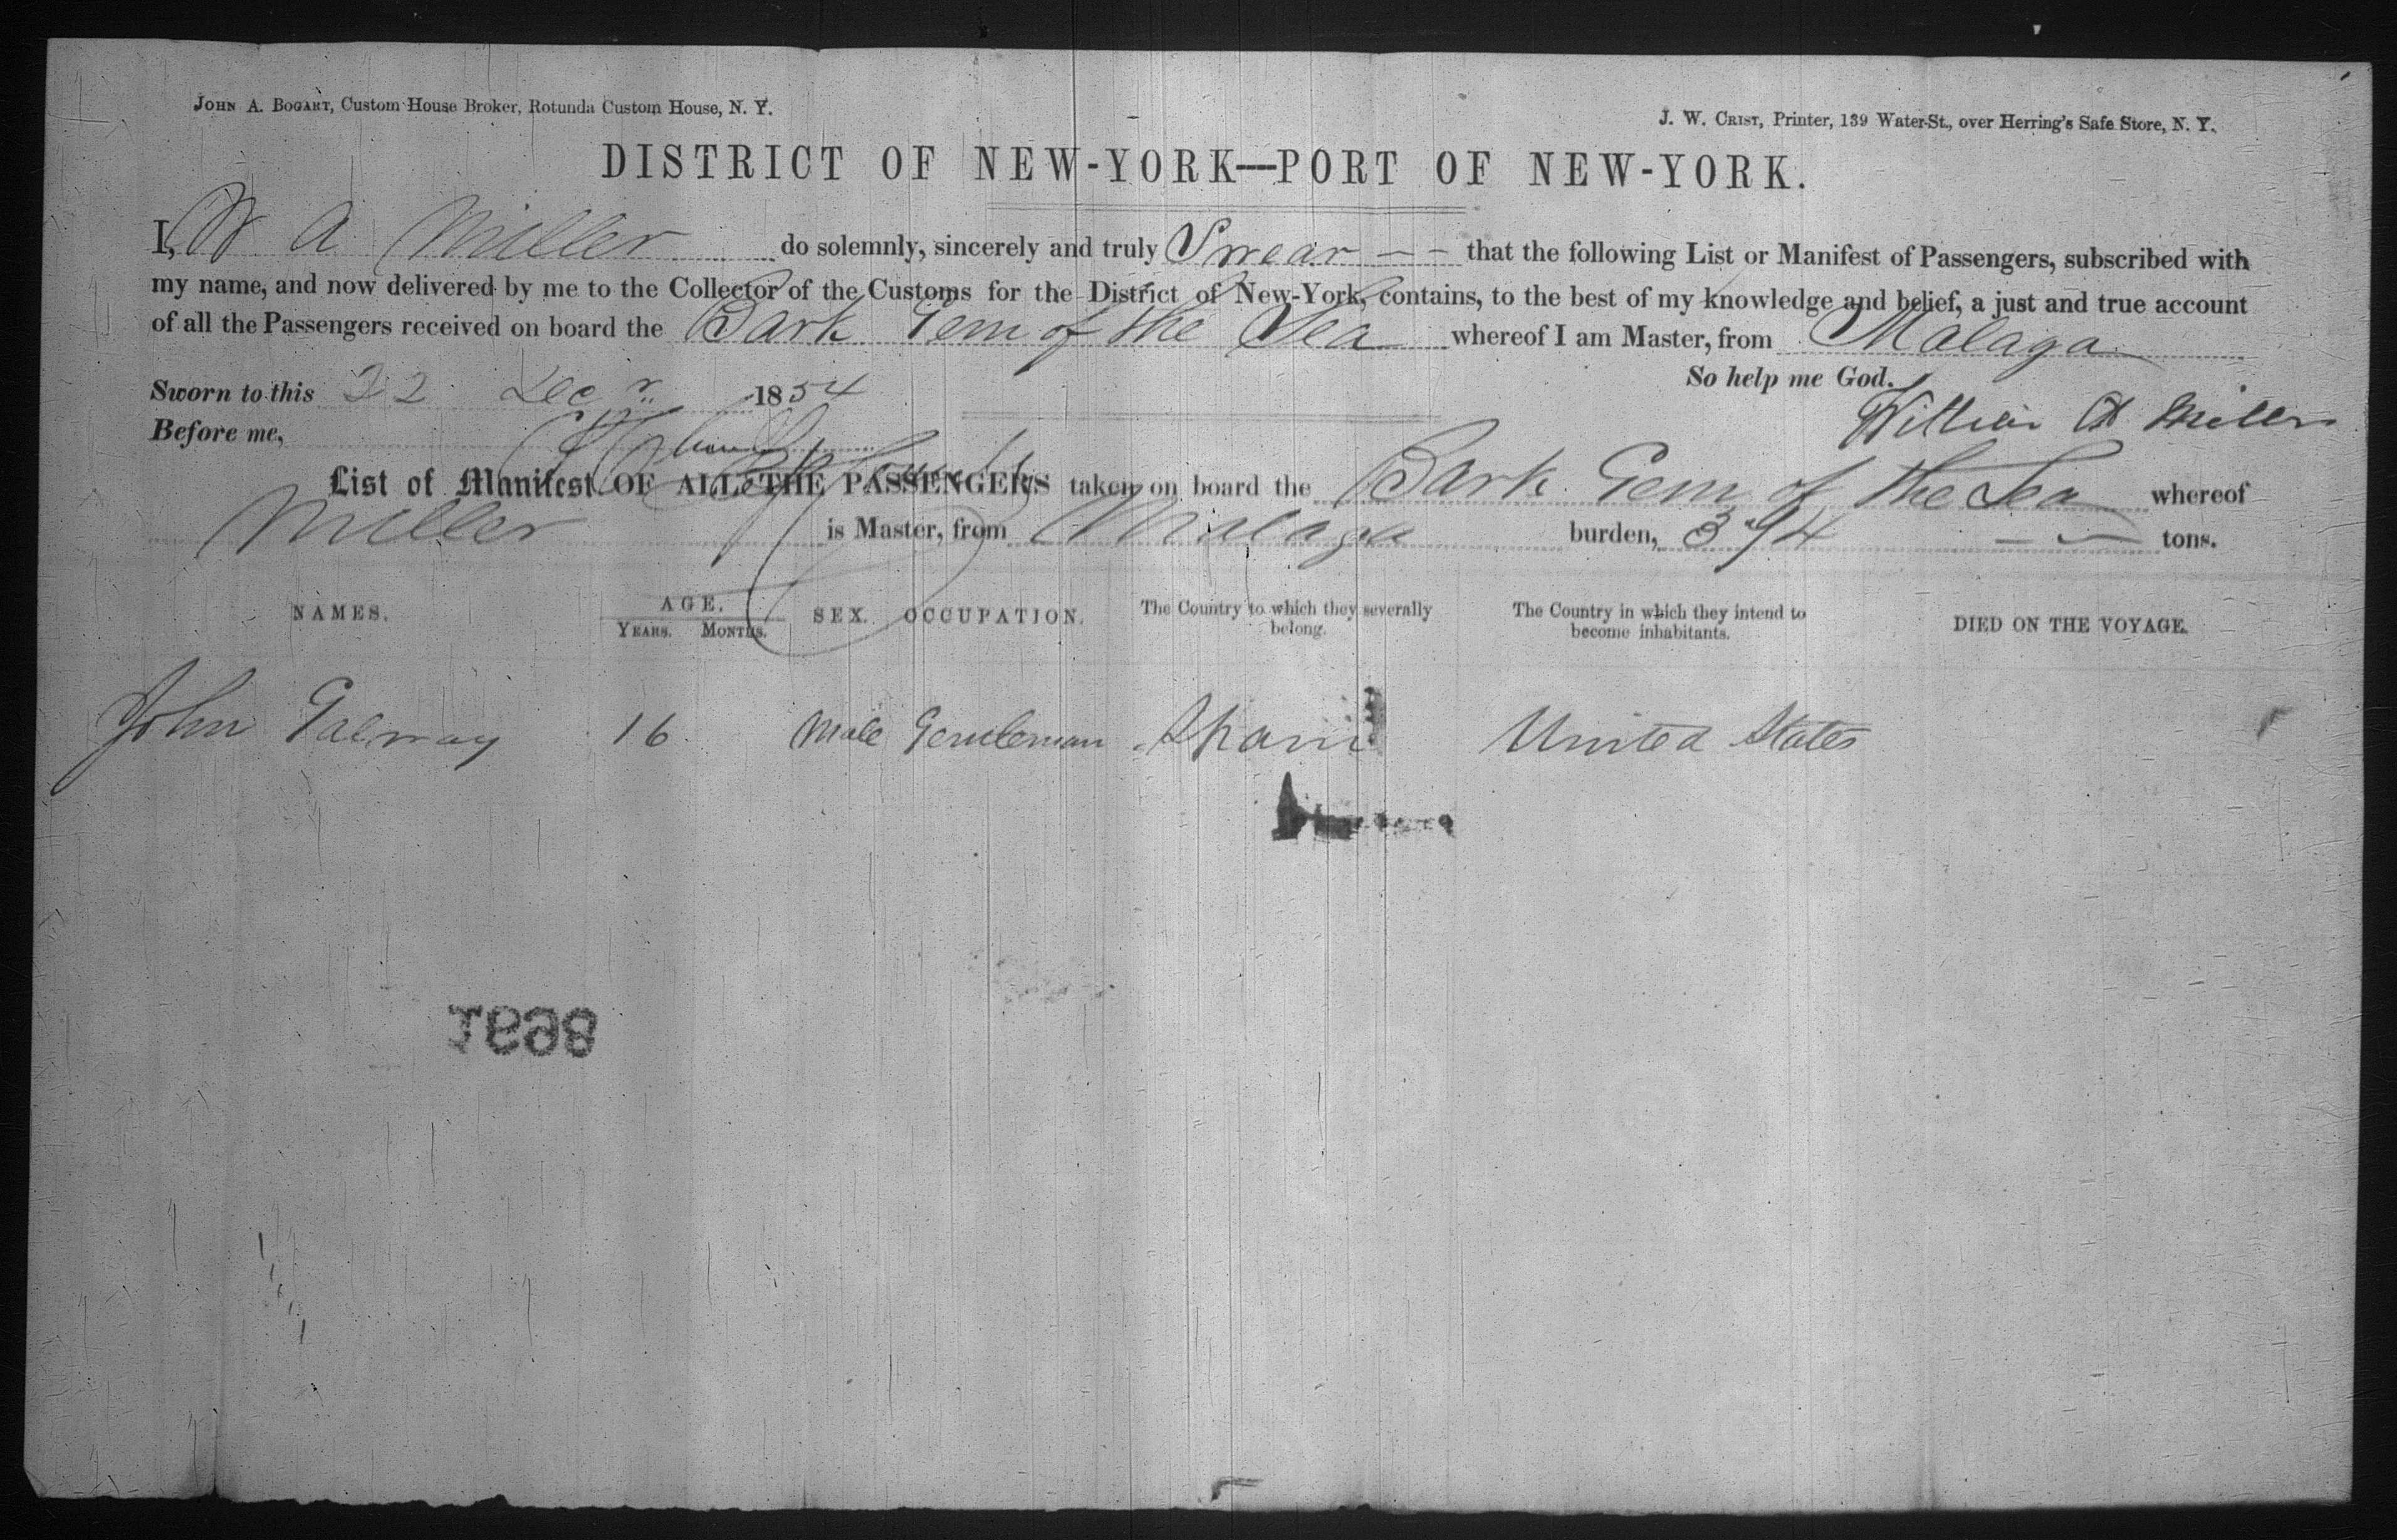 JOHN A. BOGART, Custom House Broker, Rotunda Custom House, N. Y.
J. W. CRIST, Printer, 139 Water-St., over Herring's Safe Store, N. Y.
DISTRICT OF NEW-YORK—PORT OF NEW-YORK.
I, W A Miller do solemnly, sincerely and truly Swear that the following List or Manifest of Passengers, subscribed with
my name, and now delivered by me to the Collector of the Customs for the District of New-York, contains, to the best of my knowledge and belief, a just and true account
of all the Passengers received on board the Bark Gem of the Sea whereof I am Master, from Malaga
So help me God.
Sworn to this 22 Decr 1854
William A Miller
Before me,
List of Manifest OF ALL THE PASSENGERS taken on board the Bark Gem of the Sea whereof
Miller is Master, from Malaga burden, 394 tons.
NAMES. AGE. YEARS. MONTHS. SEX. OCCUPATION. The Country to which they severally belong. The Country in which they intend to become inhabitants. DIED ON THE VOYAGE.
John Galway 16 Male Gentleman Spain United States